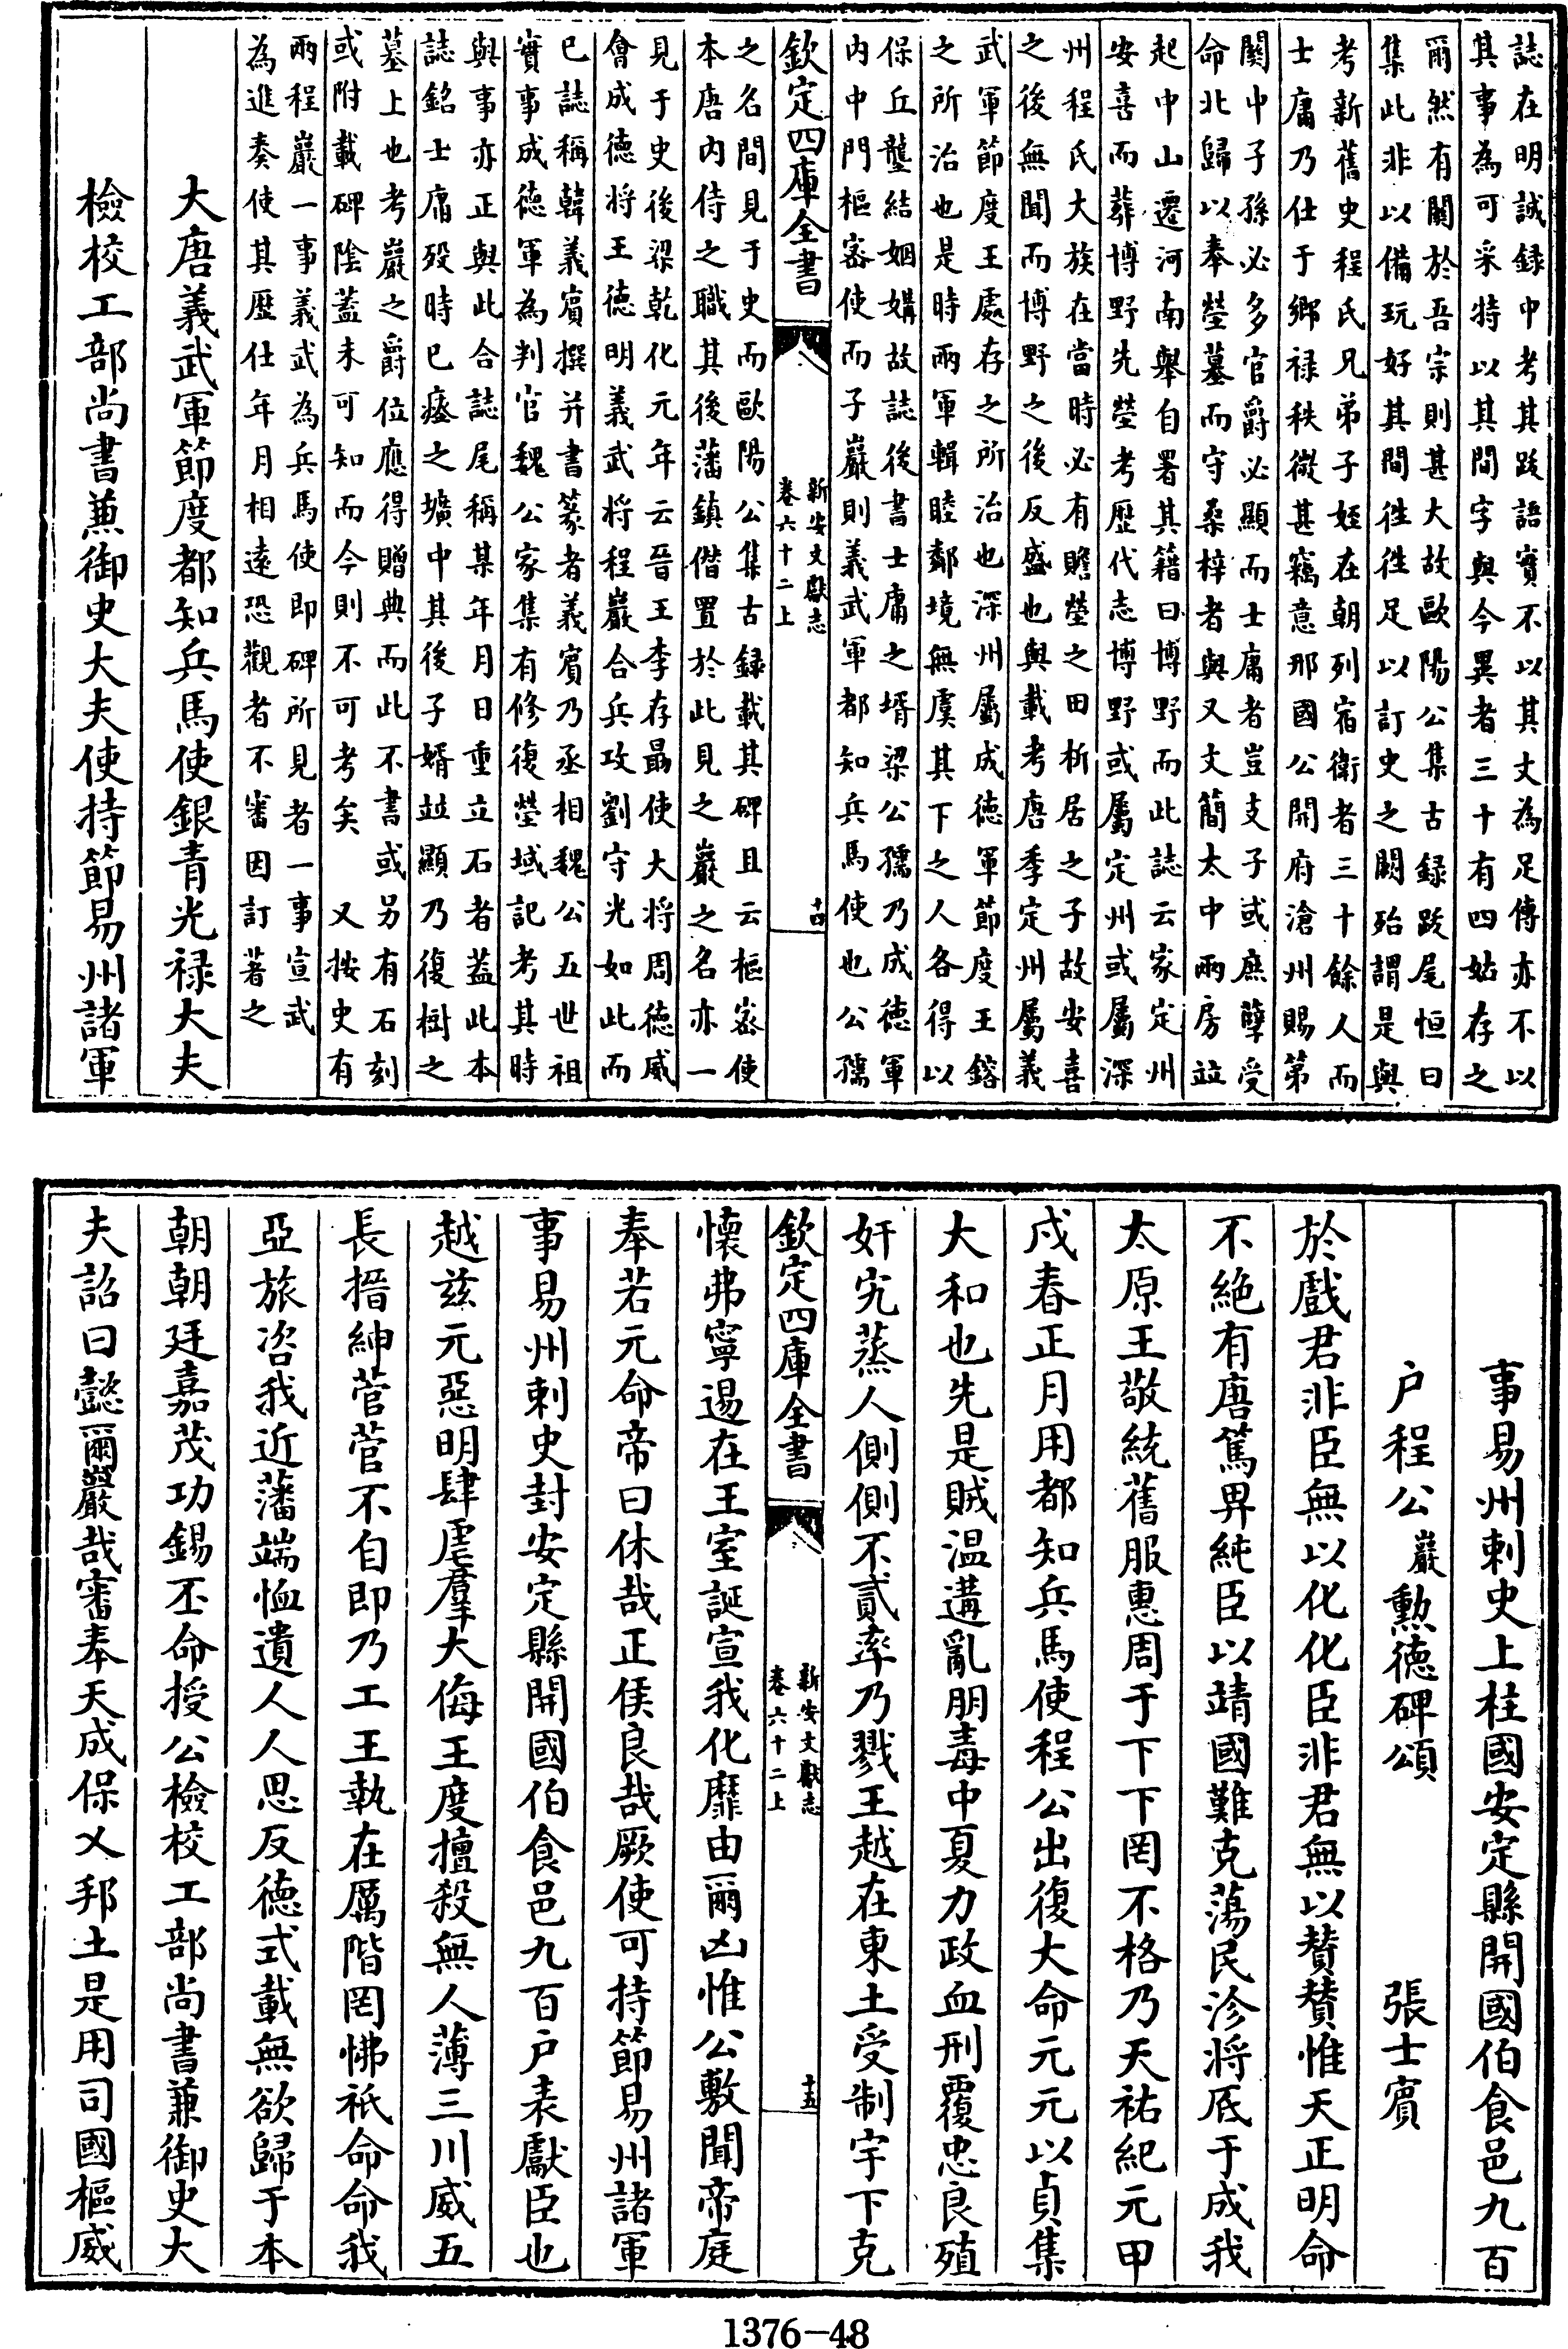 誌在明誠録中考其跋語實不以其文為足傳亦不以
其事為可采特以其間字與今異者三十有四姑存之
爾然有關於吾宗則甚大故歐陽公集古録跋尾恒曰
集此非以備玩好其間徃徃足以訂史之闕殆謂是與
考新舊史程氏兄弟子姪在朝列宿衛者三十餘人而
士庸乃仕于鄉禄秩微甚竊意那國公開府滄州賜第
關中子孫必多官爵必顯而士庸者豈支子或庶孽受
命北歸以奉塋墓而守桑梓者與又文簡太中兩房竝
起中山遷河南舉自署其籍曰博野而此誌云家定州
安喜而葬博野先塋考歴代志博野或屬定州或屬深
州程氏大族在當時必有贍塋之田析居之子故安喜
之後無聞而博野之後反盛也與載考唐季定州屬義
武軍節度王處存之所治也深州屬成德軍節度王鎔
之所治也是時兩軍輯睦鄰境無虞其下之人各得以
保丘壟結姻媾故誌後書士庸之壻梁公孺乃成德軍
内中門樞宻使而子巖則義武軍都知兵馬使也公孺
欽定四庫全書
新安文獻志
卷六十二上
十四
之名間見于史而歐陽公集古録載其碑且云樞宻使
本唐内侍之職其後藩鎮僭置於此見之巖之名亦一
見于史後梁乾化元年云晉王李存朂使大将周德威
會成德将王德明義武将程巖合兵攻劉守光如此而
已誌稱韓義賓撰并書篆者義賓乃丞相魏公五世祖
實事成德軍為判官魏公家集有修復塋域記考其時
與事亦正與此合誌尾稱某年月日重立石者葢此本
誌銘士庸歿時已瘞之壙中其後子婿竝顯乃復樹之
墓上也考巖之爵位應得贈典而此不書或另有石刻
或附載碑陰葢未可知而今則不可考矣　又按史有
兩程巖一事義武為兵馬使即碑所見者一事宣武
為進奏使其歴仕年月相遠恐觀者不審因訂著之
大唐義武軍節度都知兵馬使銀青光禄大夫
檢校工部尚書兼御史大夫使持節易州諸軍
事易州刺史上柱國安定縣開國伯食邑九百
户程公巖勲德碑頌　張士賓
於戲君非臣無以化化臣非君無以賛賛惟天正明命
不絶有唐篤畀純臣以靖國難克蕩民沴将厎于成我
太原王敬統舊服惠周于下下罔不格乃天祐紀元甲
戍春正月用都知兵馬使程公出復大命元元以貞集
大和也先是賊温遘亂朋毒中夏力政血刑覆忠良殖
奸宄蒸人側側不貳率乃戮王越在東土受制宇下克
欽定四庫全書
新安文獻志
卷六十二上
十五
懷弗寧遏在王室誕宣我化靡由爾凶惟公敷聞帝庭
奉若元命帝曰休哉正侯良哉厥使可持節易州諸軍
事易州刺史封安定縣開國伯食邑九百户表獻臣也
越兹元惡明肆虐羣大侮王度擅殺無人薄三川威五
長搢紳菅菅不自即乃工王執在厲階罔怫祇命命我
亞旅咨我近藩端恤遺人人思反德式載無欲歸于本
朝朝廷嘉茂功錫丕命授公檢校工部尚書兼御史大
夫詔曰懿爾巖哉審奉天成保乂邦土是用司國樞威
1376-48